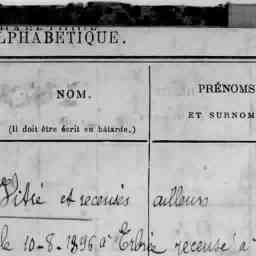 ALPHABÉTIQUE.
NOM.
(Il doit être écrit en bâtarde.)
PRÉNOMS
ET SURNOM
Vitré et recensés ailleurs
le 10-8-1896 à Erbrée recensé à